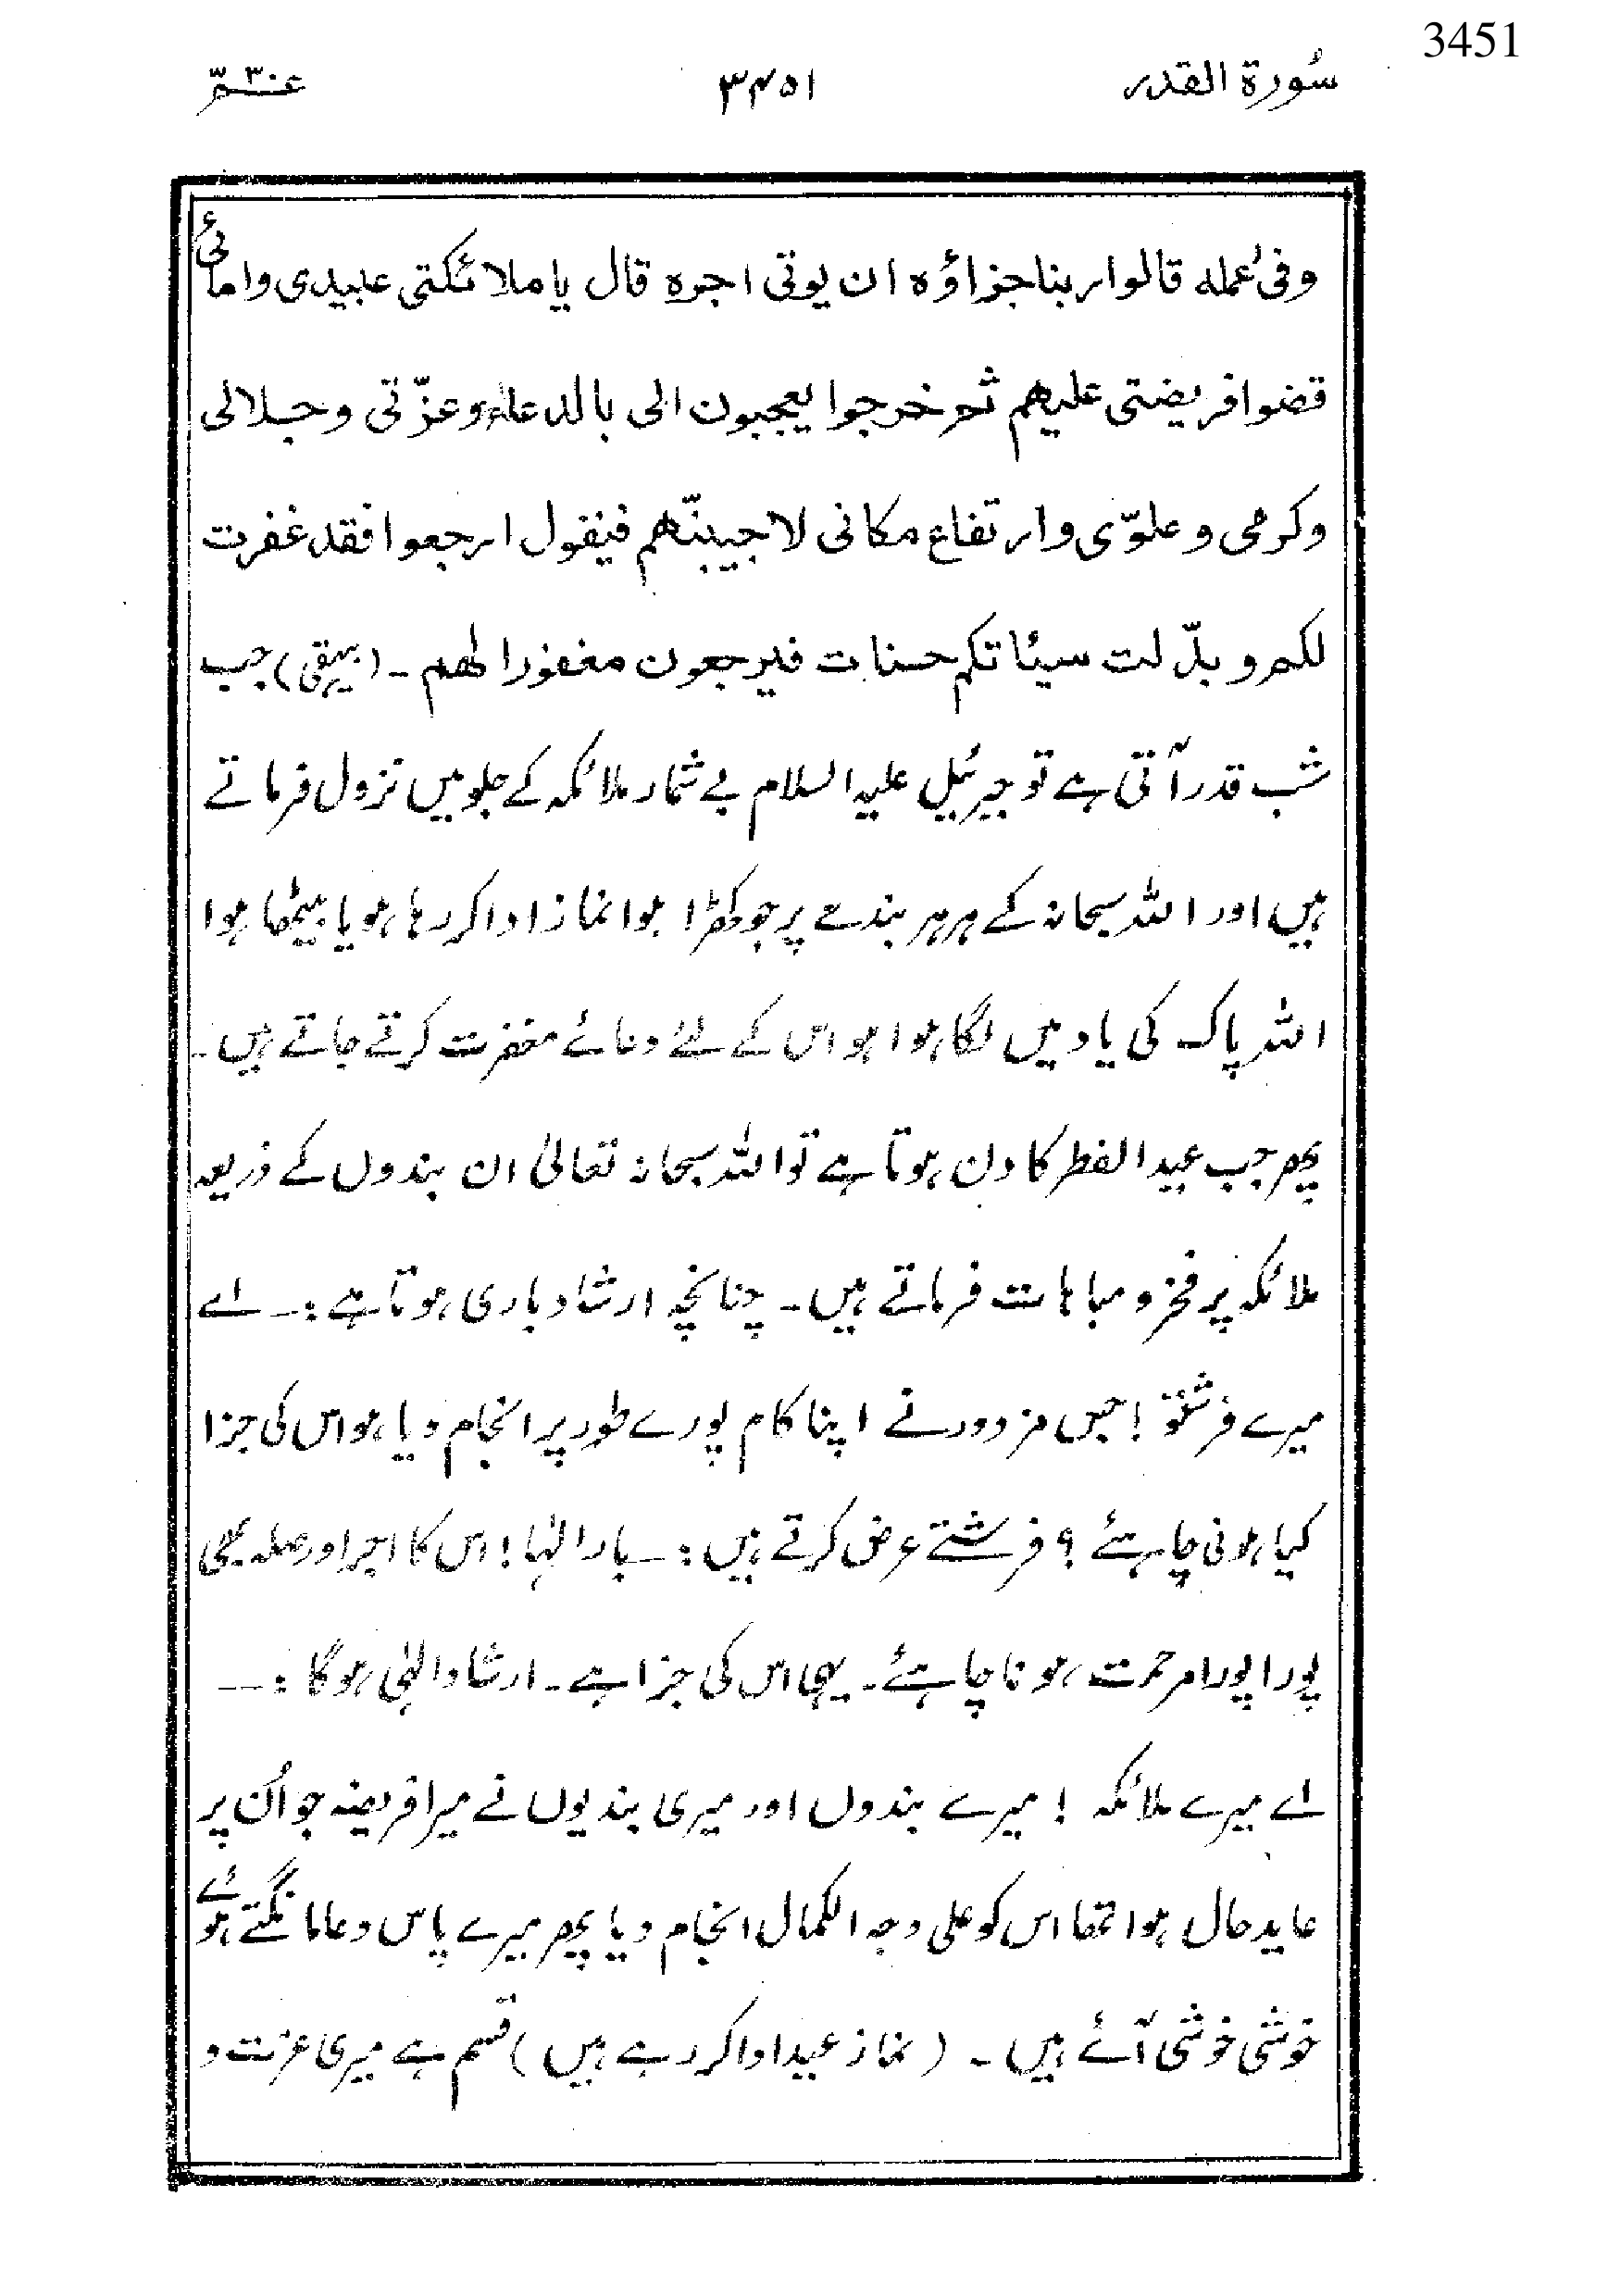 3451
سُورة القدر ۳۴۵۱ عمّ ۳۰
وفیٰ عمله قالوا ربنا جزاؤه ان یوتی اجره قال یا ملائکتی عبیدی وامائی
قضوا فریضتی علیهم ثم خرجوا یعجبون الی بالدعاء وعزّتی وجلالی
وکرمی وعلوّی وارتفاع مکانی لاجیبنّهم فیقول ارجعوا فقد غفرت
لکم وبدّلت سیئاتکم حسنات فیرجعون مغفورا لهم ۔ (بیہقی) جب
شب قدر آتی ہے تو جبرئیل علیہ السلام بے شمار ملائکہ کے جلو میں نزول فرماتے
ہیں اور اللہ سبحانہ کے ہر ہر بندے پر جو کھڑا ہوا نماز ادا کر رہا ہو یا بیٹھا ہوا
اللہ پاک کی یاد میں لگا ہوا ہو اس کے لئے دعائے مغفرت کرتے جاتے ہیں۔
پھر جب عید الفطر کا دن ہوتا ہے تو اللہ سبحانہ تعالیٰ ان بندوں کے ذریعہ
ملائکہ پر فخر و مباہات فرماتے ہیں۔ چنانچہ ارشاد باری ہوتا ہے :۔ اے
میرے فرشتو ! جس مزدور نے اپنا کام پورے طور پر انجام دیا ہو اس کی جزا
کیا ہونی چاہئے ؟ فرشتے عرض کرتے ہیں :۔ بار الٰہا ! اس کا اجر اور صلہ بھی
پورا پورا مرحمت ہونا چاہئے۔ یہی اس کی جزا ہے۔ ارشاد الٰہی ہوگا :۔۔
اے میرے ملائکہ ! میرے بندوں اور میری بندیوں نے میرا فریضہ جو اُن پر
عاید حال ہوا تھا اس کو علی وجہ الکمال انجام دیا پھر میرے پاس دعا مانگتے ہوئے
خوشی خوشی آئے ہیں ۔ (نماز عید ادا کر رہے ہیں) قسم ہے میری عزت و